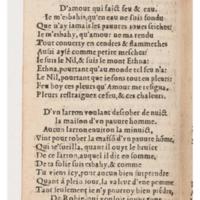 D'amour qui faict feu & eau.
Ie m'esbahy, qu'en eau ne suis fondu
Que n'ay iamais les pauures yeux seiches:
Ie m'esbahy, qu'amour ne ma rendu
Tout conuerty en cendres & flammeches
Aussi aysé comme petite mesche:
Ie suis le Nil, & suis le mont Ethna:
Ethna, pourtant qu'au monde tel feu n'a:
Le Nil, pourtant que ie sons tout en pleurs:
Feu boy ces pleurs qu'Amour me
Pleurs restraignez ce feu, & ces chaleurs.
D'vn larron voulant desrober de nuict
la maison d'vn pauure homme.
Aucun larron enuiron la minuict,
Vint pour rober la maison d'vn pauure hõme,
Qui s'esueilla, quant il ouyt le bruict
De ce larron, auquel il dit en somme,
De ta folie suis esbahy, & comme
Tu viens icy, pour aucun bien surprendre
Quant à plein iour, la valeur d'vne pomme
Tant seulement ie n'y pourroy bien prẽdre,
De Robin, qui vouloit iouer